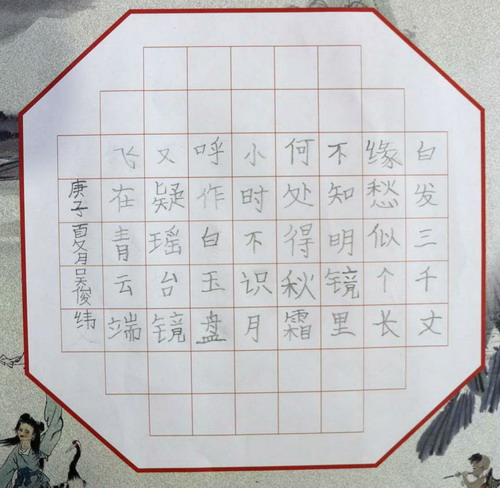 白发三千丈
缘愁似个长
不知明镜里
何处得秋霜
小时不识月
呼作白玉盘
又疑瑶台镜
飞在青云端
庚子夏月吴俊纬